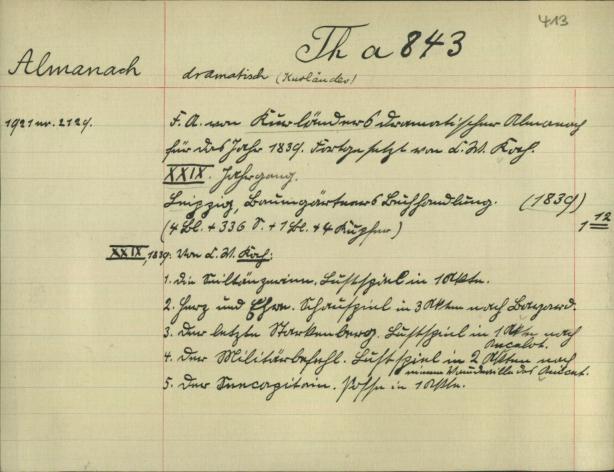 413
Th a 843
Almanach
dramatisch (Kurländer)
1921 nr. 2129.
F. A. von Kurländers dramatischer Almanach
für das Jahr 1839. Fortgesetzt von C. W. Koch.
XXIX. Jahrgang.
Leipzig, Baumgärtners Buchhandlung. (1839)
(4 Bl. + 336 S. + 1 Bl. + 4 Kupfer)
1 12
XXIX, 1839: Von C. W. Koch:
1. Die Seiltänzerinn. Lustspiel in 1 Akte.
2. Herz und Ehre. Schauspiel in 3 Akten nach Bayard.
3. Der letzte Starkenberg. Lustspiel in 1 Akten nach
Ancelot.
4. Der Militärbefehl. Lustspiel in 2 Akten nach
einem Vaudeville des
5. Der Seecapitain. Posse in 1 Akte.